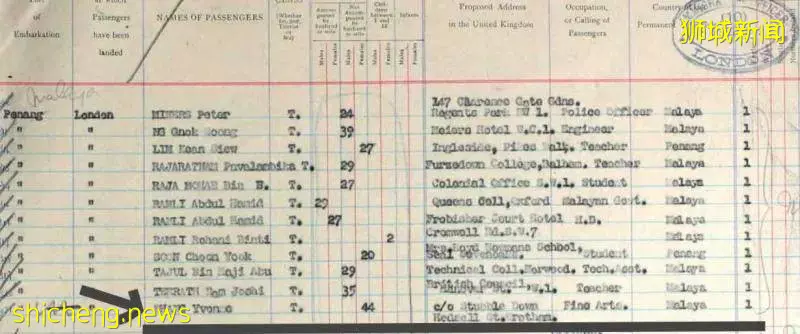 Port of Embarkation
at which Passengers have been landed
NAMES OF PASSENGERS
CLASS (Whether 1st, 2nd, Tourist or 3rd)
Accompanied by husband or wife
Not Accompanied by husband or wife
Children between 1 and 12
Infants
Males Females Males Females Males Females Males Females
Proposed Address in the United Kingdom
Occupation, or Calling of Passengers
Country of
Permanent
狮城新闻
LONDON
Malaya
147 Clarence Gate Gdns.
Penang London MINERS Peter T. 24 Regents Park NW 1. Police Officer Malaya 1
" " NG Gnok 39 Meiers Hotel W.C.1. Engineer Malaya 1
" " LIM Kean Siew T. 27 Ingleside, Walk, Teacher Penang 1
" " RAJARATNAM Puvalambika T. 29 Furzedown College, Balham. Teacher Malaya 1
" " RAJA Bin H. T. 27 Colonial Office S.W.1. Student Malaya 1
" " RAMLI Abdul Hamid T. 29 Queens Coll, Oxford Malayan Govt. Malaya 1
" " RAMLI Abdul Hamid T. 27 Frobisher Court Hotel H.D. Malaya 1
" " RAMLI Rohani Binti T. 2 Cromwell Rd. S.W.7 Malaya 1
School,
" " SOON Choon Yook T. 20 Sevenoaks. Student Penang 1
" " TAJUL Bin Haji Abu T. 29 Technical Coll. Norwood. Tech. Asst. Malaya 1
British Council,
" " Ram Joshi T. 35 W.1. Teacher Malaya 1
Yvonne T. 44 c/o Down Fine Arts. Malaya 1
shicheng.news